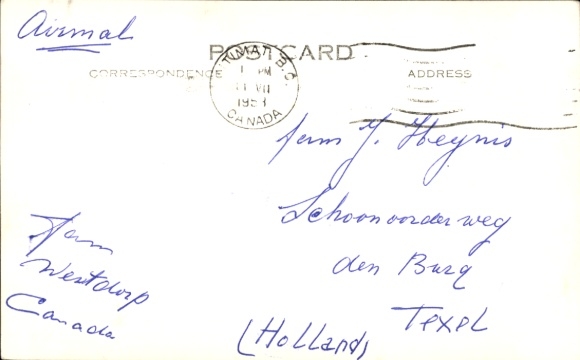 Airmail
POSTCARD
CORRESPONDENCE
ADDRESS
KITIMAT B.C.
PM
VII
CANADA
fam J. Heynis
Schoonoorderweg
den Burg
Texel
(Holland)
fam
Westdorp
Canada